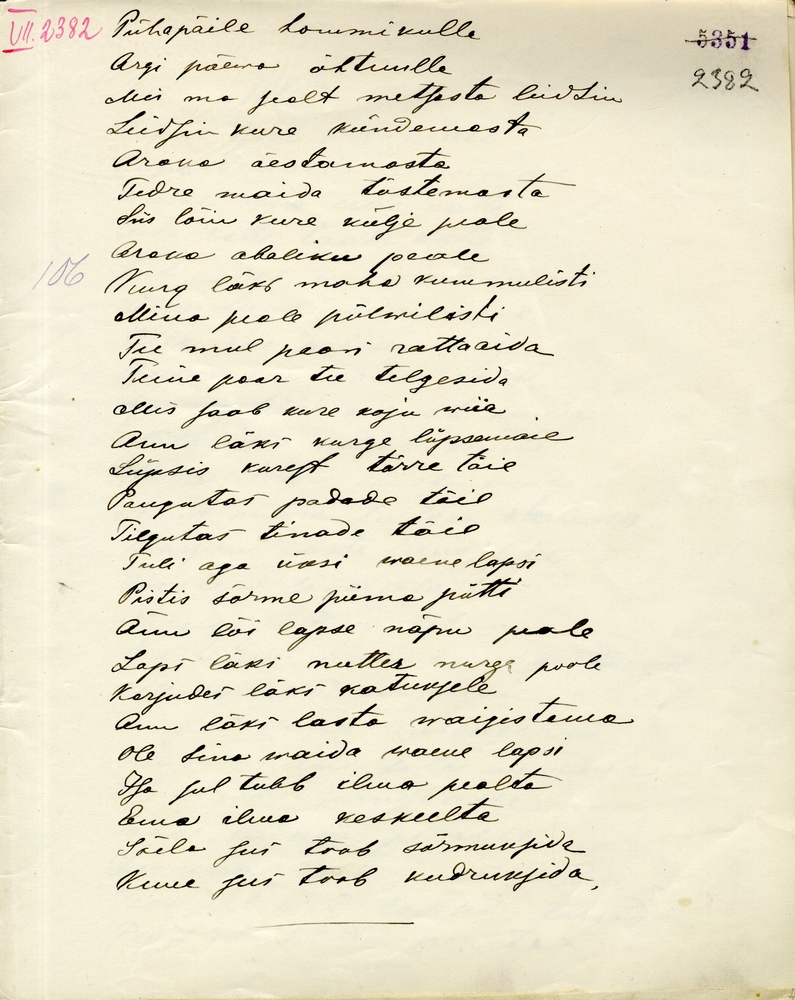 VII. 2382
5351
2382
Pühapäile hommikulle
Argi päewa õhtuulle
Mis ma sealt metsasta leidsin
Leidsin kure kündemasta
Araka äestamasta
Tedre maida tõstemasta
Siis lõin kure külje peale
Araka abaliku peale
106
Kurg läks maha kummulisti
Mina peale põlwilisti
Tee mul paari rattaaida
Teine paar tee telgesida
Mis saab kure koju wiia
Ann läks kurge lüpsemaie
Lüpsis kurest tõrre täie
Pangutas padade täie
Tilgutas tinade täie
Tuli aga üksi waene lapsi
Pistis sõrme piima pütti
Ann lõi lapse näpu peale
Laps läks nuttes nurga poole
Karjudes läks katuksele
Ann läks lasta waigistama
Ole sina waida waene lapsi
Isa sul tuleb ilma pealta
Ema ilma keskeelta
Sõela sus toob sõrmuksida
Kuue sus toob kudruksida,